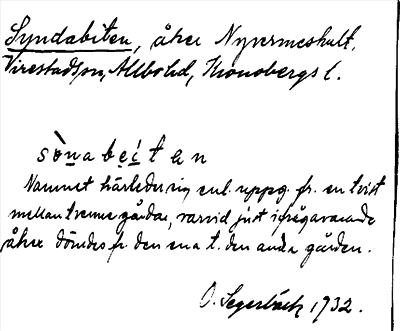 Syndabiten, åker Nyvermeshult,
Virestads sn, Allbo hd, Kronobergs l.
sònabei̯tan
Namnet härleder sig enl. uppg. fr. en tvist
mellan tvenne gårdar, varvid just ifrågavarande
åker dömdes fr. den ena t. den andra gården.
O. Segerbäck 1932.